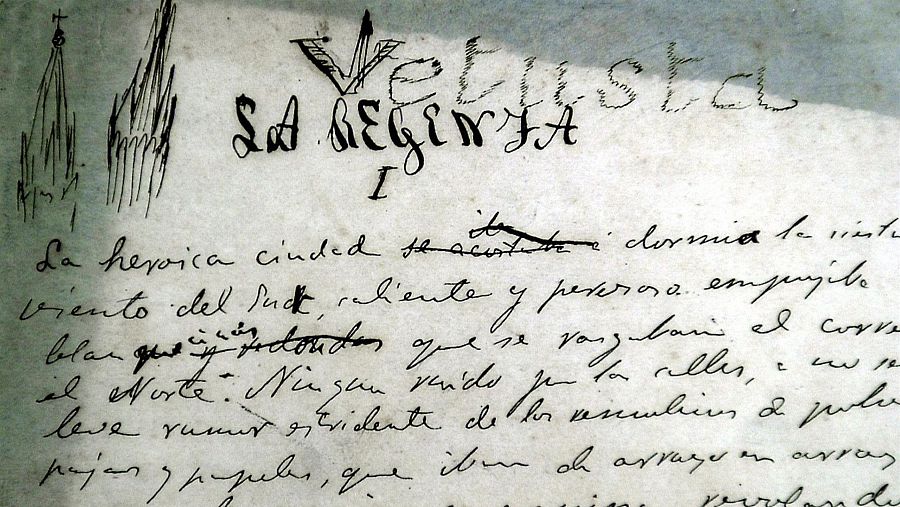 Vetusta
LA REGENTA
I
La heroica ciudad se acostaba dormia la siesta
viento del Sur, caliente y perezoso empujaba
blanquecinas y redondas que se rasgaban al correr
el Norte. Ningun ruido por las calles, a no se
leve rumor estridente de los remolinos de polvo
pajas y papeles, que iban de arroyo en arroyo
revolando